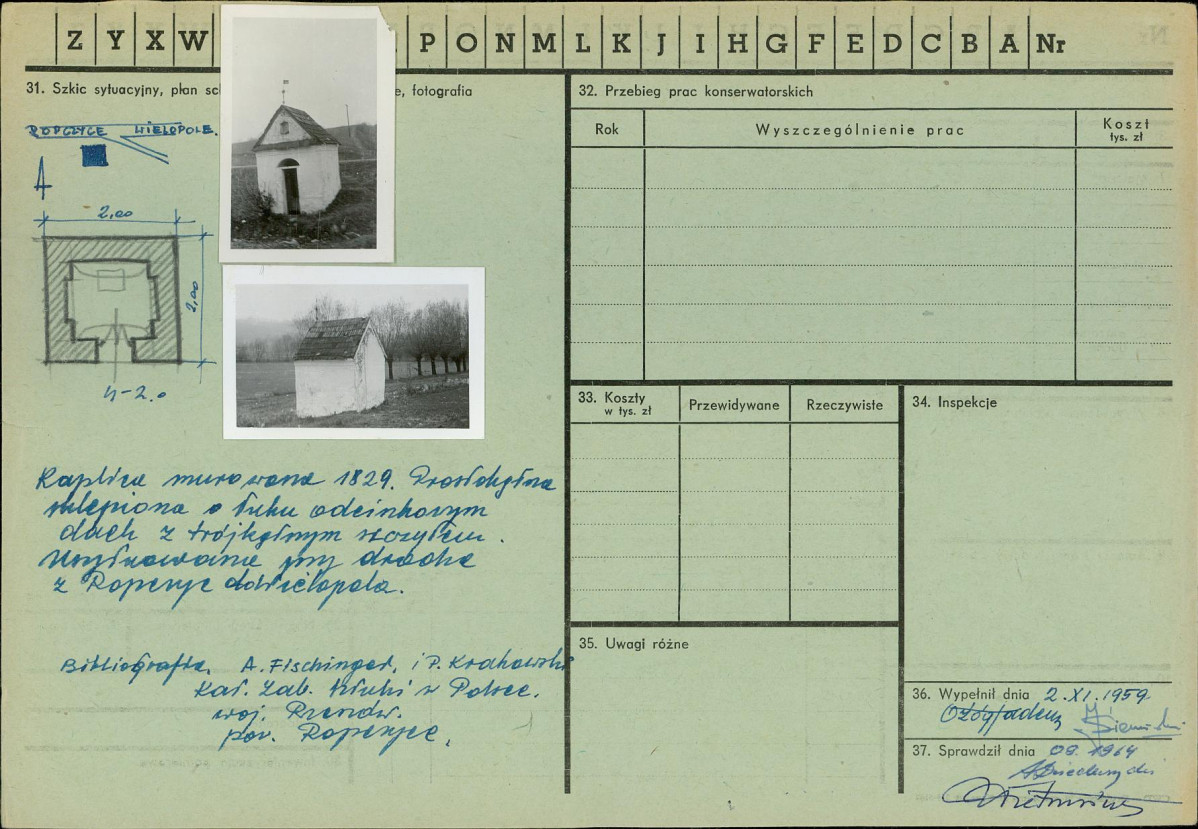 Z Y X W P O N M L K J I H G F E D C B A Nr
31. Szkic sytuacyjny, plan sc e, fotografia
ROPCZYCE WIELOPOLE.
2,00
2,00
h-2.0
Kaplica murowana 1829. Prostokątna
sklepiona o łuku odcinkowym
dach z trójkątnym szczytem.
Usytuowana przy drodze
z Ropczyc do Wielopola.
Bibliografia. A. Fischinger, i P. Krakowski
Kat. Zab. Sztuki w Polsce.
woj. Rzeszów.
pow. Ropczyce.
32. Przebieg prac konserwatorskich
Rok Wyszczególnienie prac Koszt
tys. zł
33. Koszty
w tys. zł
Przewidywane Rzeczywiste
34. Inspekcje
35. Uwagi różne
36. Wypełnił dnia 2.XI.1959.
37. Sprawdził dnia 09.1964